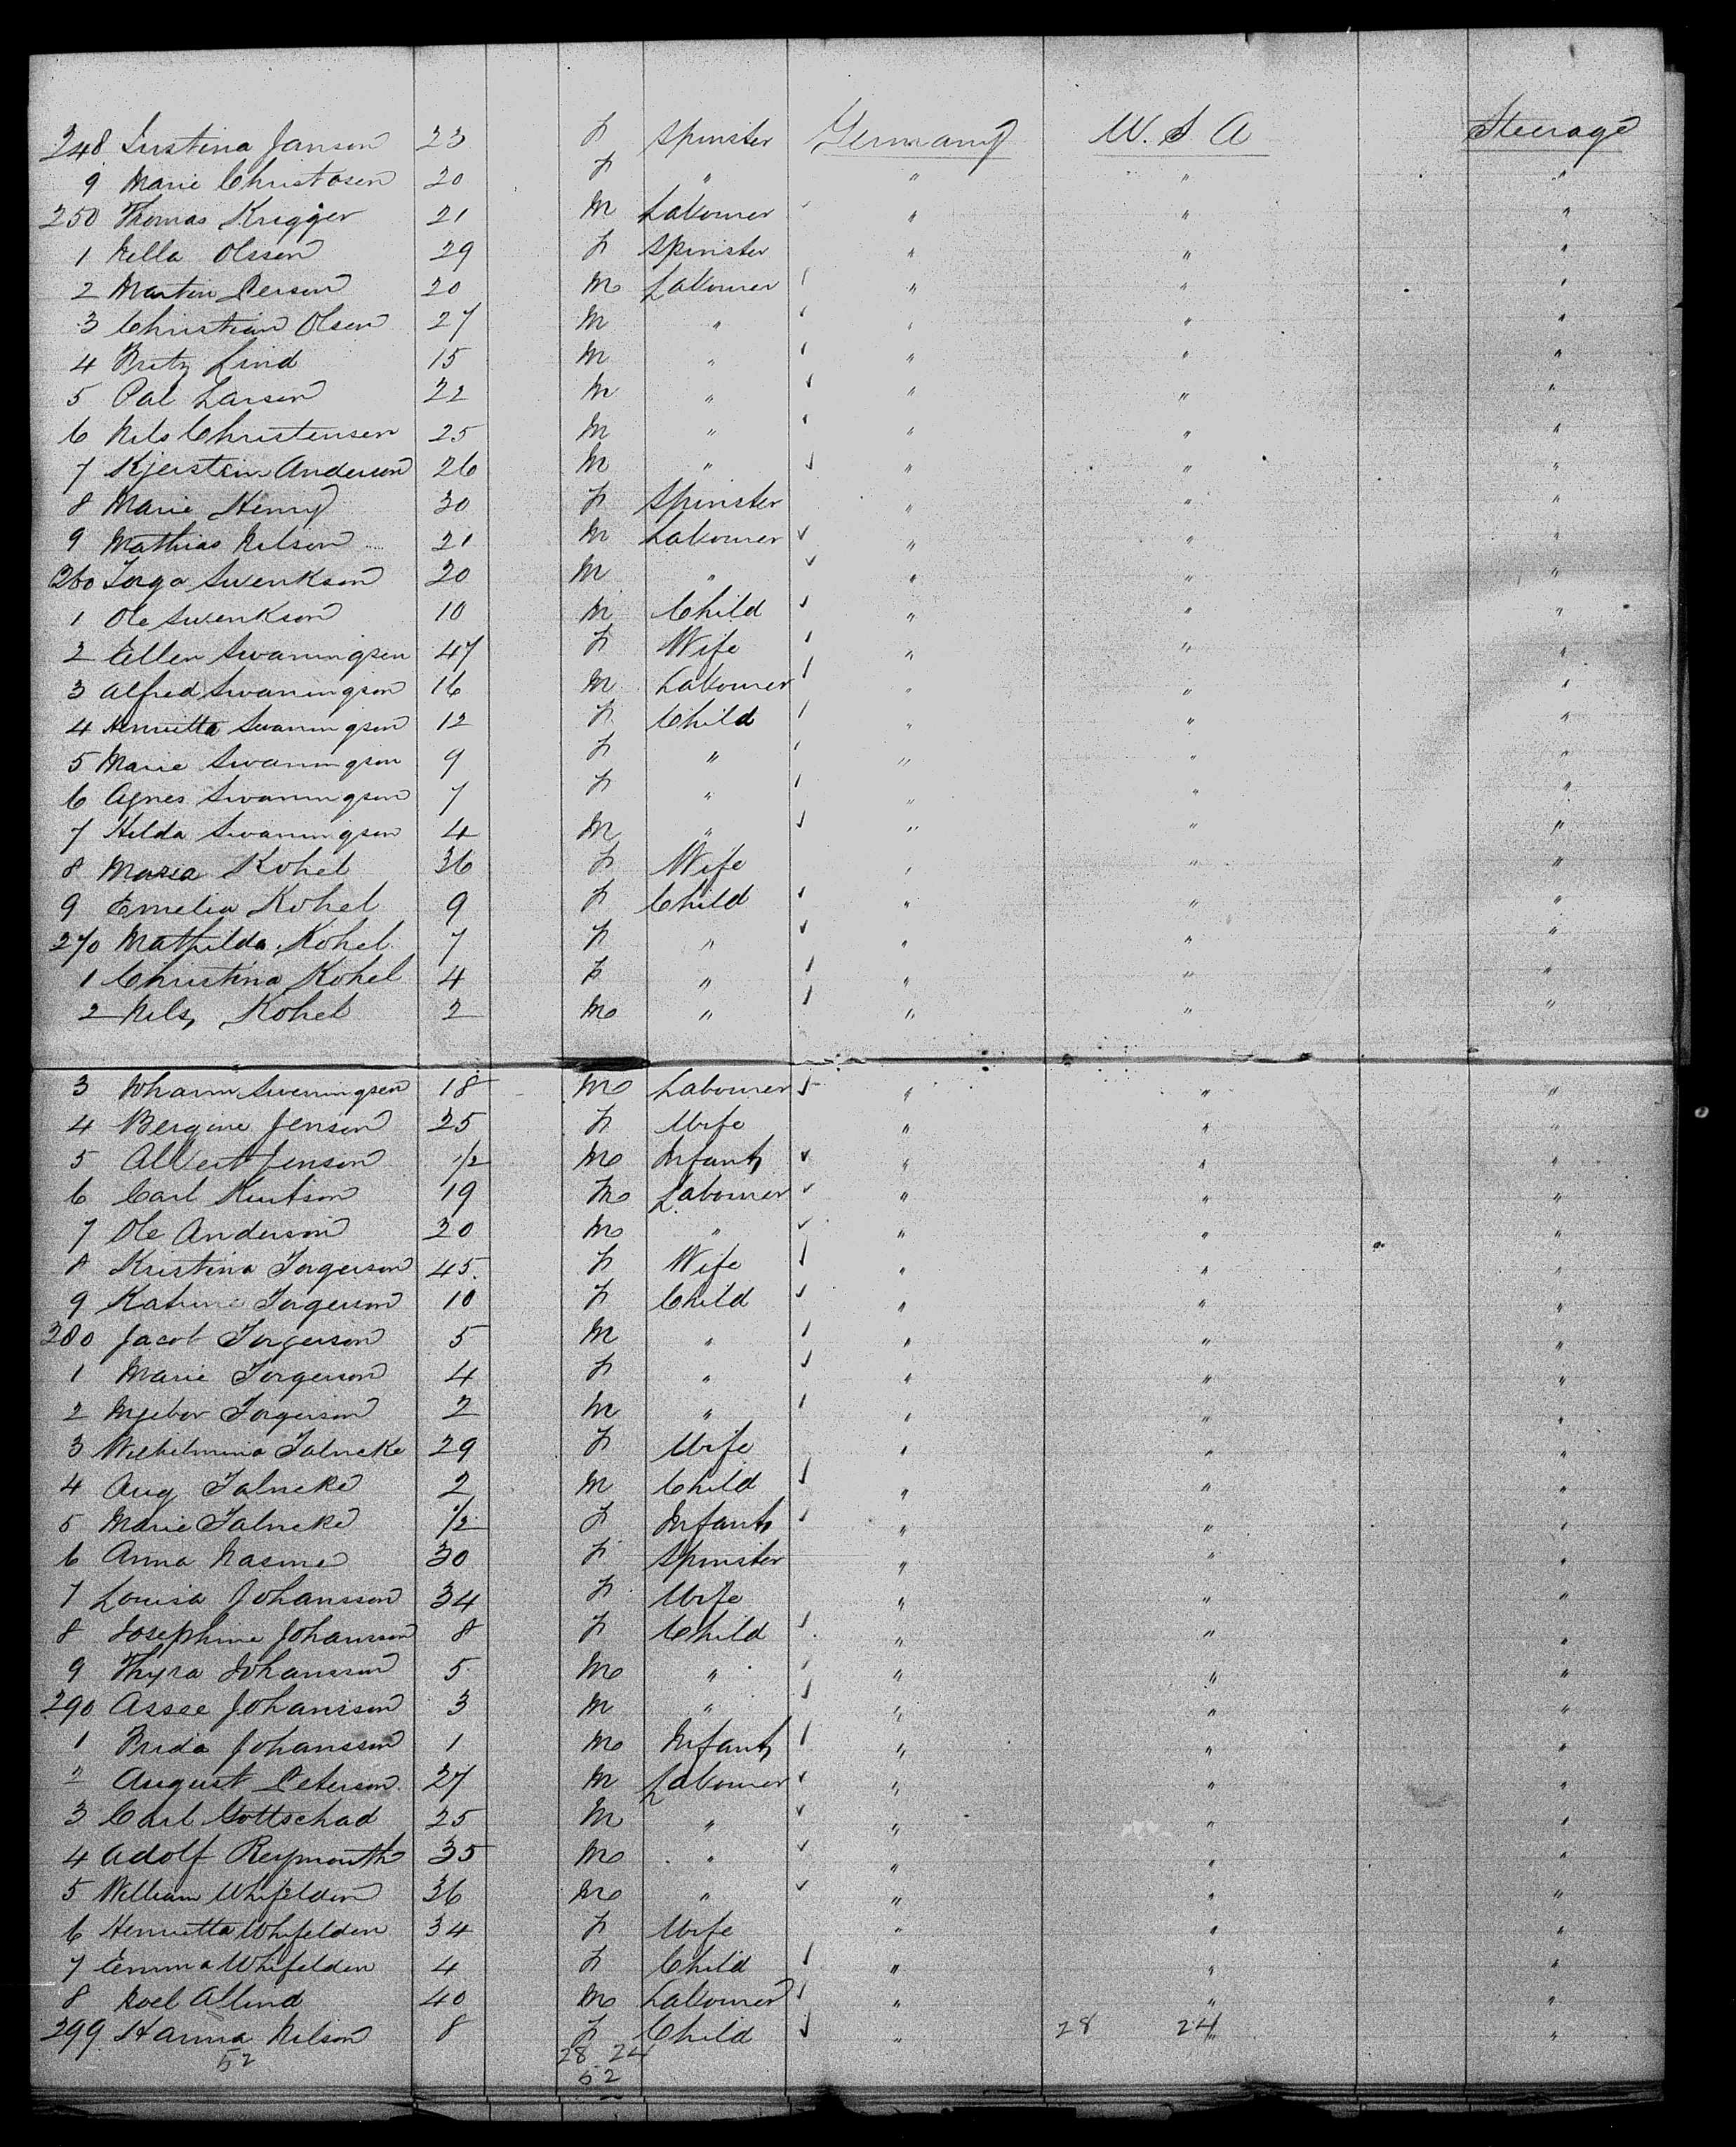 248 Justina Janson 23 F Spinster Germany U.S.A Steerage
9 Marie Christosen 20 F " " " "
250 Thomas Krigger 21 M Labourer " " "
1 Nella Olsson 29 F Spinster " " "
2 Martin Person 20 M Labourer " " "
3 Christian Olsen 27 M " " " "
4 Fritz Lind 15 M " " " "
5 Pal Larson 22 M " " " "
6 Nils Christensen 25 M " " " "
7 Kjerstein Anderson 26 M " " " "
8 Marie Henry 30 F Spinster " " "
9 Mathias Nilson 21 M Labourer " " "
260 Torgo Swenkson 20 M " " " "
1 Ole Swenkson 10 M Child " " "
2 Ellen Swaningsen 47 F Wife " " "
3 Alfred Swaningson 16 M Labourer " " "
4 Henrietta Swaningson 12 F Child " " "
5 Marie Swaningson 9 F " " " "
6 Agnes Swaningson 7 F " " " "
7 Hilda Swaningson 4 M " " " "
8 Maria Kohel 36 F Wife " " "
9 Emelia Kohel 9 F Child " " "
270 Mathilda Kohel 7 F " " " "
1 Christina Kohel 4 F " " " "
2 Nils Kohel 2 M " " " "
3 Johann Sweningsen 18 M Labourer " " "
4 Bergine Jenson 25 F Wife " " "
5 Albert Jenson 1/2 M Infant " " "
6 Carl Knutson 19 M Labourer " " "
7 Ole Anderson 20 M " " " "
8 Kristina Torgerson 45 F Wife " " "
9 Katrine Torgerson 10 F Child " " "
280 Jacob Torgerson 5 M " " " "
1 Marie Torgerson 4 F " " " "
2 Ingebor Torgerson 2 M " " " "
3 Wilhelmina Talncke 29 F Wife " " "
4 Aug Talncke 2 M Child " " "
5 Marie Talncke 1/2 F Infant " " "
6 Anna Rasme 30 F Spinster " " "
7 Louisa Johansson 34 F Wife " " "
8 Josephine Johansson 8 F Child " " "
9 Thyra Johansson 5 M " " " "
290 Assee Johansson 3 M " " " "
1 Frida Johansson 1 M Infant " " "
2 August Peterson 27 M Labourer " " "
3 Carl Gottschad 25 M " " " "
4 Adolf Reymouth 35 M " " " "
5 William Whifelden 36 M " " " "
6 Henrietta Whifelden 34 F Wife " " "
7 Emma Whifelden 4 F Child " " "
8 Noel Allind 40 M Labourer " " "
299 Hanna Nilson 8 F Child " 28 24 " "
52 28 24
52